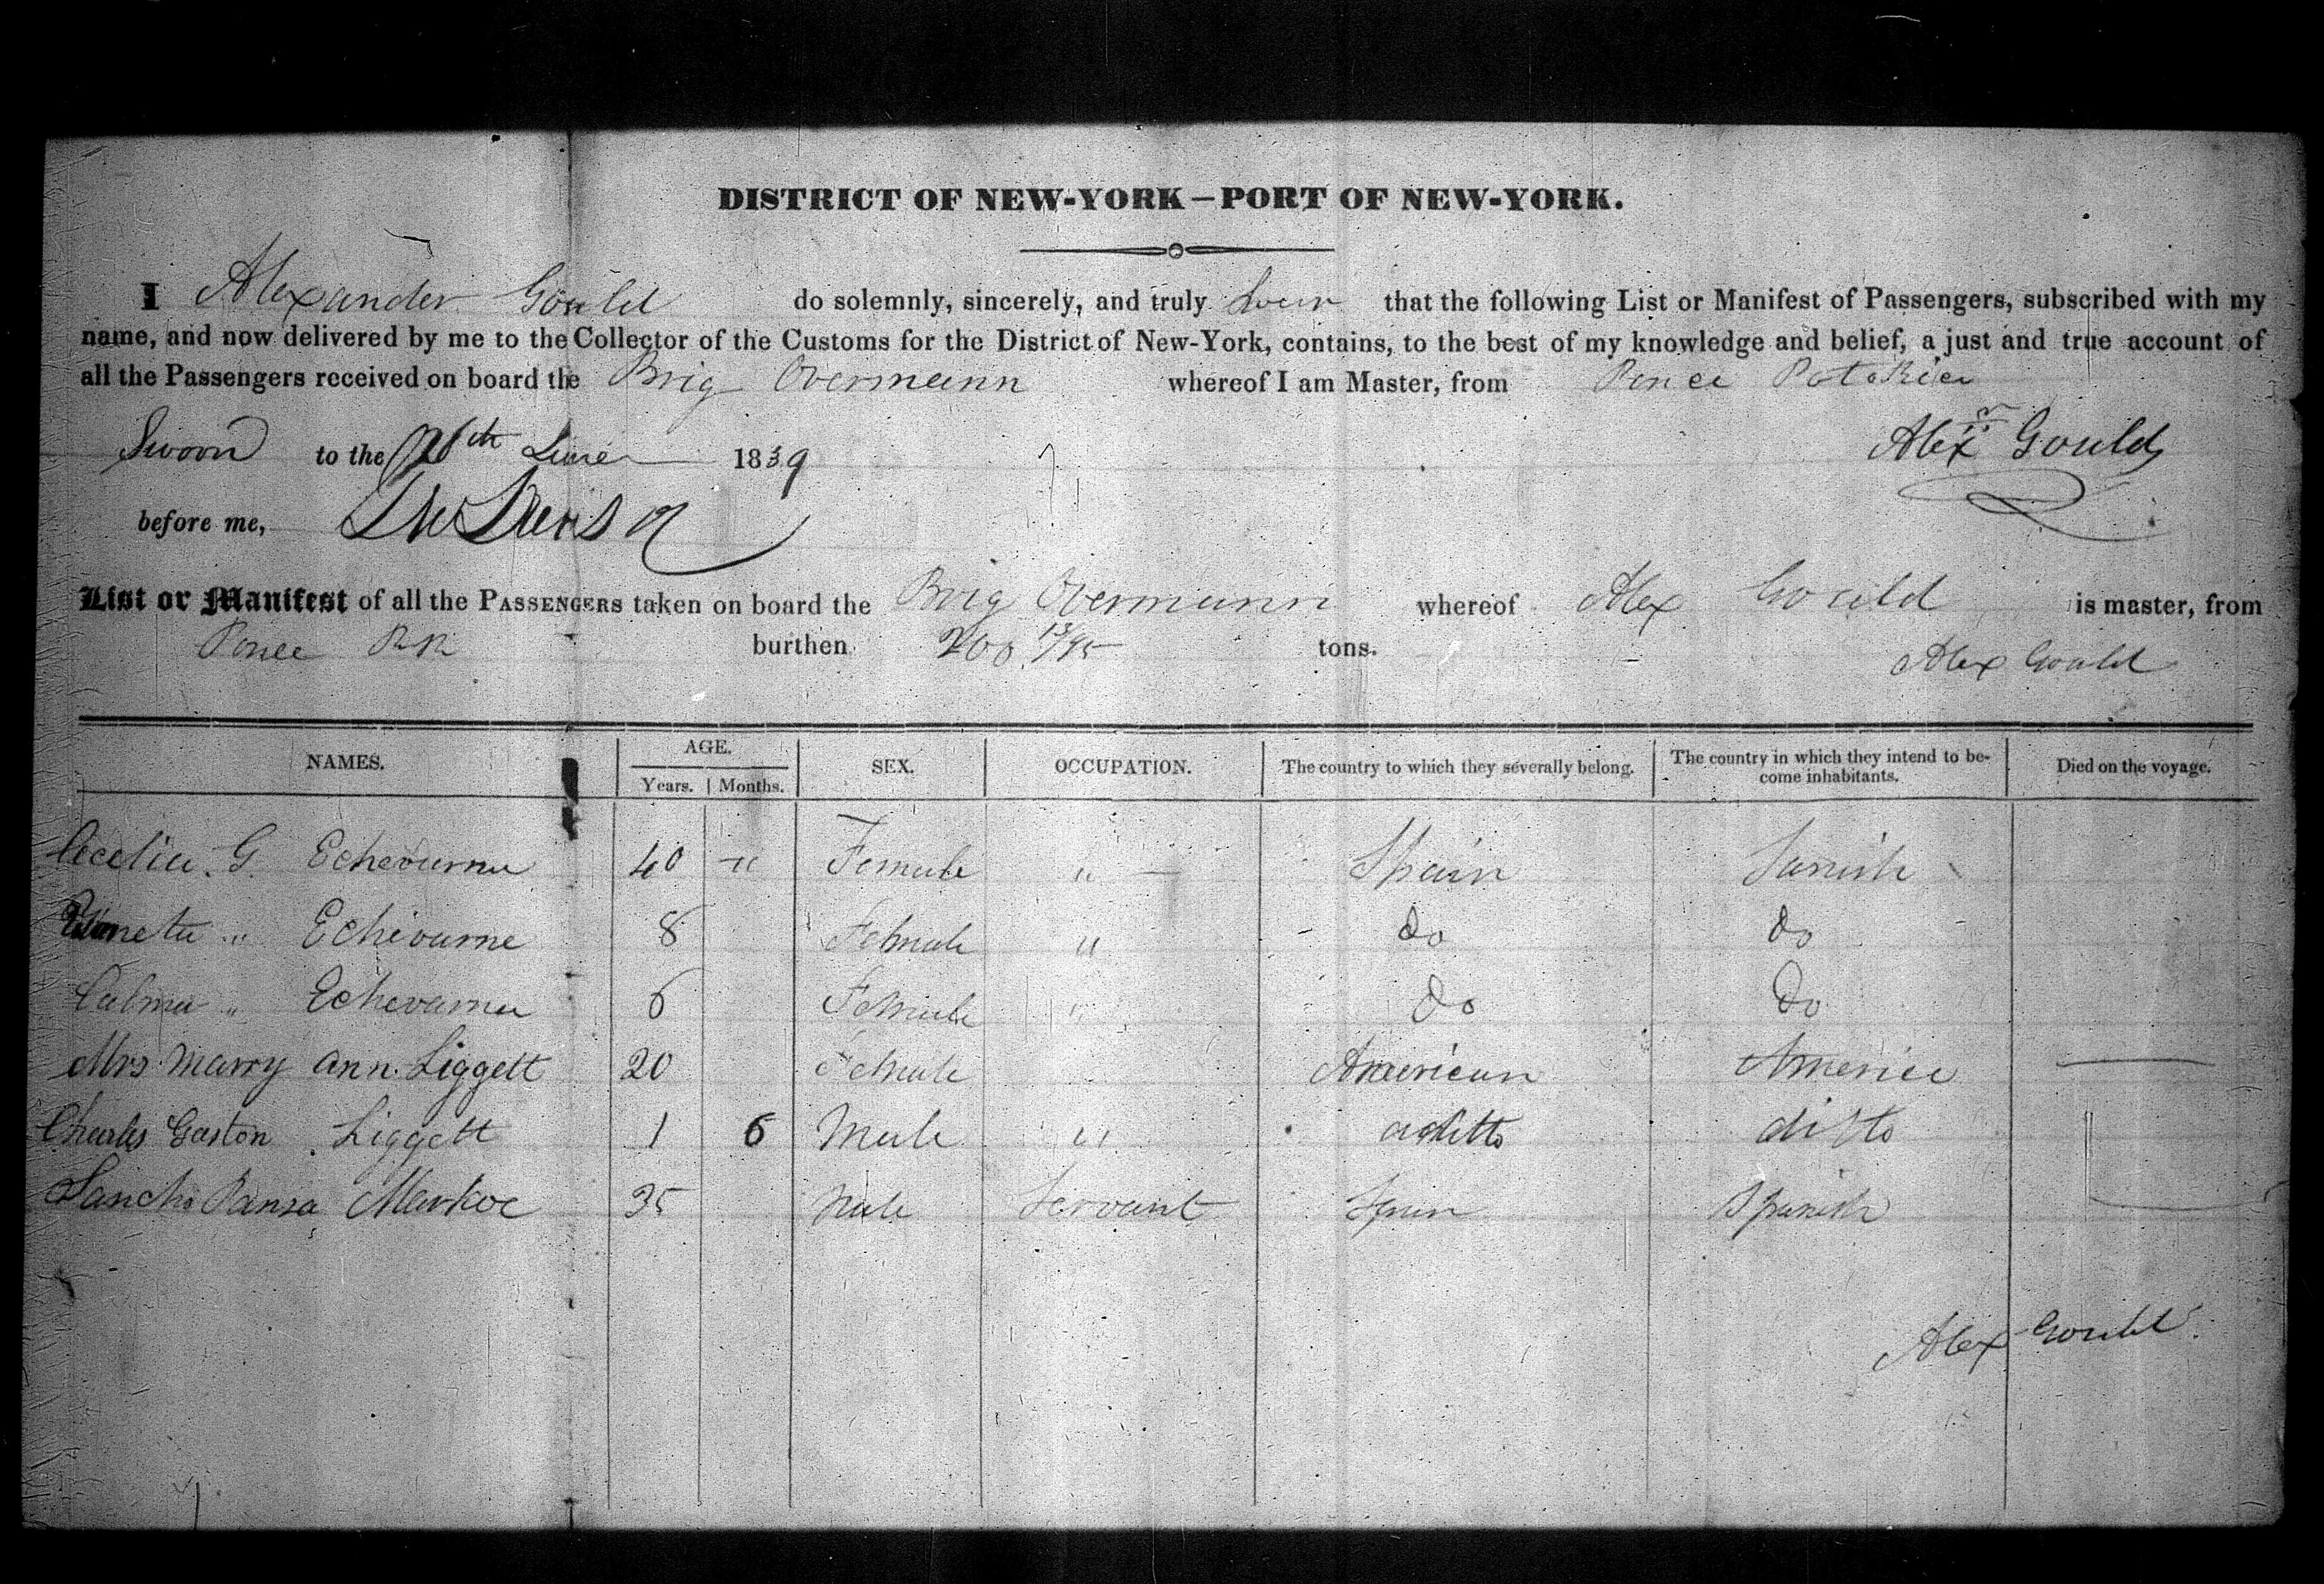 DISTRICT OF NEW-YORK—PORT OF NEW-YORK.
I Alexander Gould do solemnly, sincerely, and truly that the following List or Manifest of Passengers, subscribed with my
name, and now delivered by me to the Collector of the Customs for the District of New-York, contains, to the best of my knowledge and belief, a just and true account of
all the Passengers received on board the Brig Overmann whereof I am Master, from Ponce
Sworn to the 26th June 1839 Alexr Gould
before me,
List or Manifest of all the PASSENGERS taken on board the Brig Overmann whereof Alex Gould is master, from
Ponce PR burthen 200 13/95 tons. Alex Gould
NAMES. AGE. SEX. OCCUPATION. The country to which they severally belong. The country in which they intend to be- Died on the voyage.
Years. Months. come inhabitants.
G. Echevarria 40 " Female " Spain
" 8 Female " do do
" Echevarria 6 Female " Do Do
Mrs Marry Ann Liggett 20 Female American America
Charles Gaston Liggett 1 6 Male " ditto ditto
Sancho Pansa Markoe 35 Male Servant Spain Spanish
Alex Gould